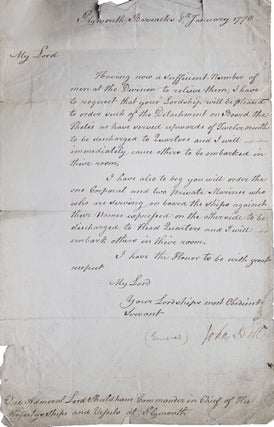 Plymouth Barracks 8th January 1778
My Lord
Having now a Sufficient Number of
men at the Division to relieve them, I have
to request that your Lordship will be pleased
to order such of the Detachment on Board the
as have served upwards of Twelve months
to be discharged to Quarters and I will
immediately cause others to be embarked in
their room,
I have also to beg you will order the
one Corporal and two Private Marines who
who are serving on board the Ships against
their Names expressed on the otherside to be
discharged to Head Quarters and I will
embark others in their room.
I have the Honor to be with great
respect
My Lord
Your Lordships most Obedient
Servant
(General) John Bell
Admiral Lord Shuldham Commander in Chief of His
Majestys Ships and Vessels at Plymouth